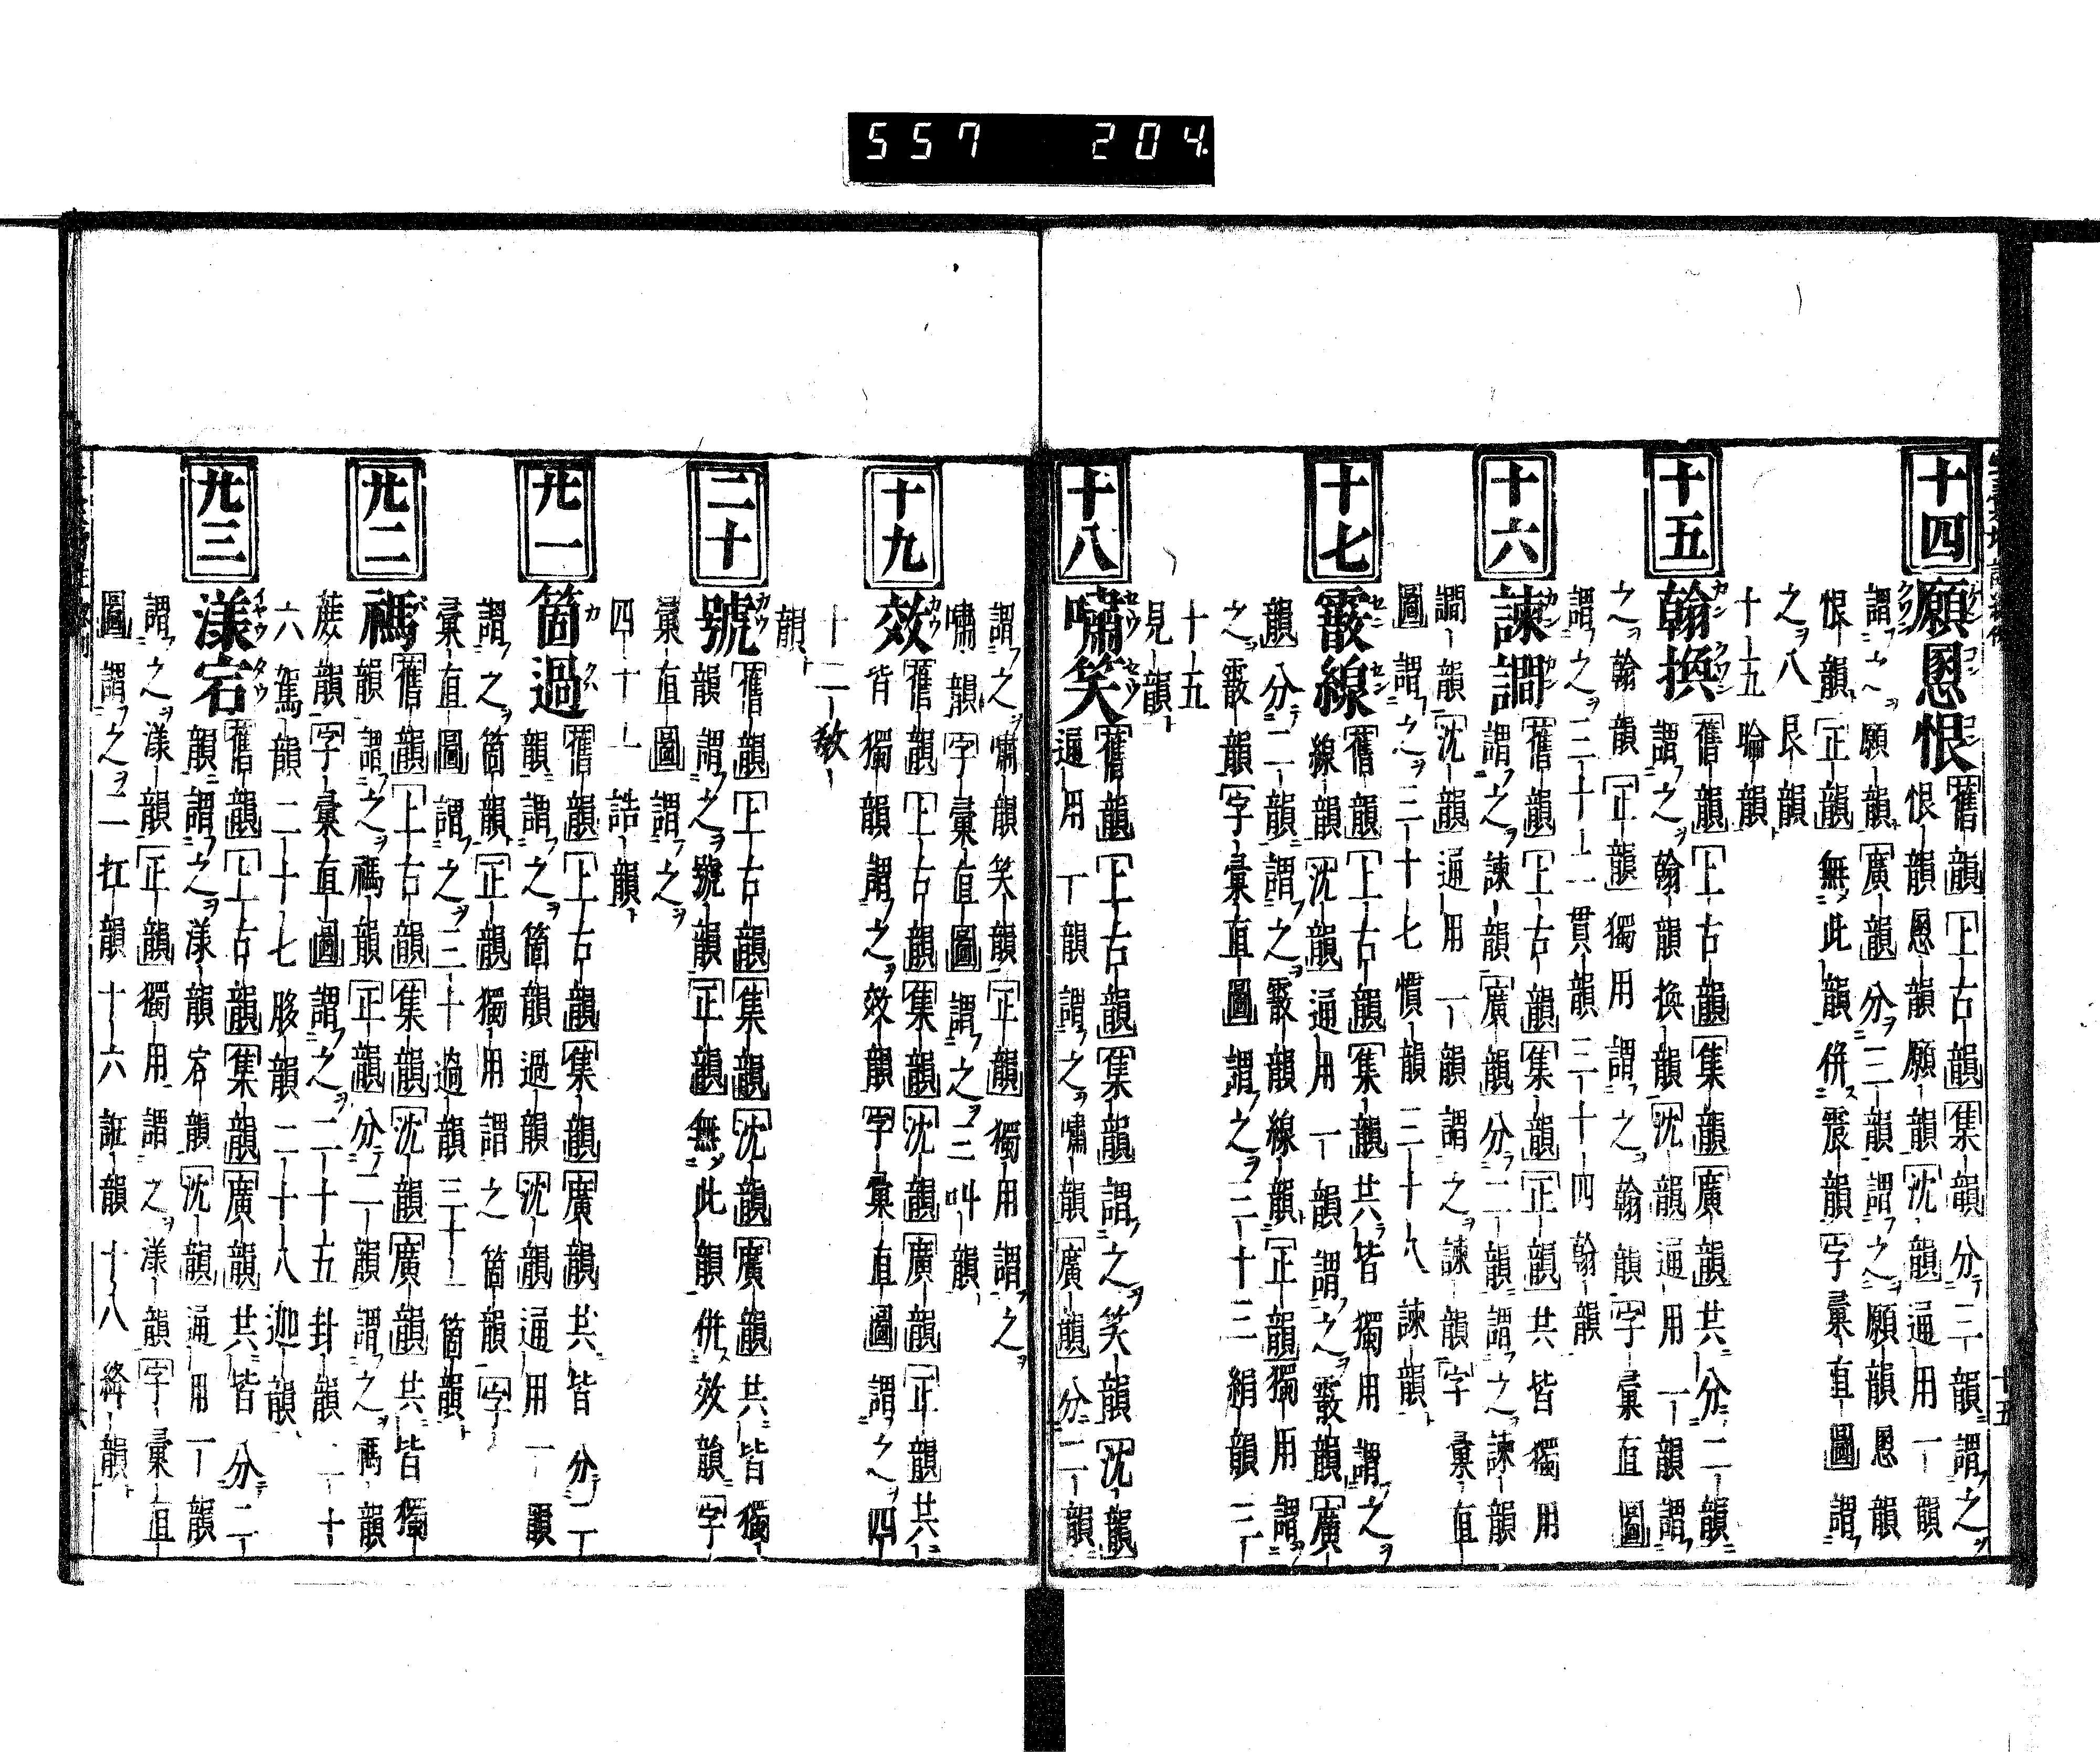 557 204
十四 願慁恨 舊韻上古韻集韻分三韻謂之
恨韻慁韻願韻沈韻通用一韻
謂之願韻廣韻分三韻謂之願韻慁韻
恨韻正韻無此韻併震韻字彙直圖謂
之八艮韻
十五睔韻
十五 翰換 舊韻上古韻集韻廣韻共分二韻
謂之翰韻換韻沈韻通用一韻謂
之翰韻正韻獨用謂之翰韻字彙直圖
謂之三十二貫韻三十四翰韻
十六 諫諷 舊韻上古韻集韻正韻共皆獨用
謂之諫韻廣韻分二韻謂之諫韻
諷韻沈韻通用一韻謂之諫韻字彙直
圖謂之三十七慣韻三十八諫韻
十七 霰線 舊韻上古韻集韻共皆獨用謂之
線韻沈韻通用一韻謂之霰韻廣
韻分二韻謂之霰韻線韻正韻獨用謂
之霰韻字彙直圖謂之二十三絹韻二
十五
見韻
十八 嘯笑 舊韻上古韻集韻謂之笑韻沈韻
通用一韻謂之嘯韻廣韻分二韻
謂之嘯韻笑韻正韻獨用謂之
嘯韻字彙直圖謂之三叫韻
十九 效 舊韻上古韻集韻沈韻廣韻正韻共
皆獨韻謂之效韻字彙直圖謂之四
十二敎
韻
二十 號 舊韻上古韻集韻沈韻廣韻共皆獨
韻謂之號韻正韻無此韻併效韻字
彙直圖謂之
四十一誥韻
廿一 箇過 舊韻上古韻集韻廣韻共皆分二
韻謂之箇韻過韻沈韻通用一韻
謂之箇韻正韻獨用謂之箇韻字
彙直圖謂之三十過韻三十一箇韻
廿二 禡 舊韻上古韻集韻沈韻廣韻共皆獨
韻謂之禡韻正韻分二韻謂之禡韻
蔗韻字彙直圖謂之二十五卦韻二十
六駕韻二十七䏧韻二十八迦韻
廿三 漾宕 舊韻上古韻集韻廣韻共皆分二
韻謂之漾韻宕韻沈韻通用一韻
謂之漾韻正韻獨用謂之漾韻字彙直
圖謂之二扛韻十六誑韻十八絳韻